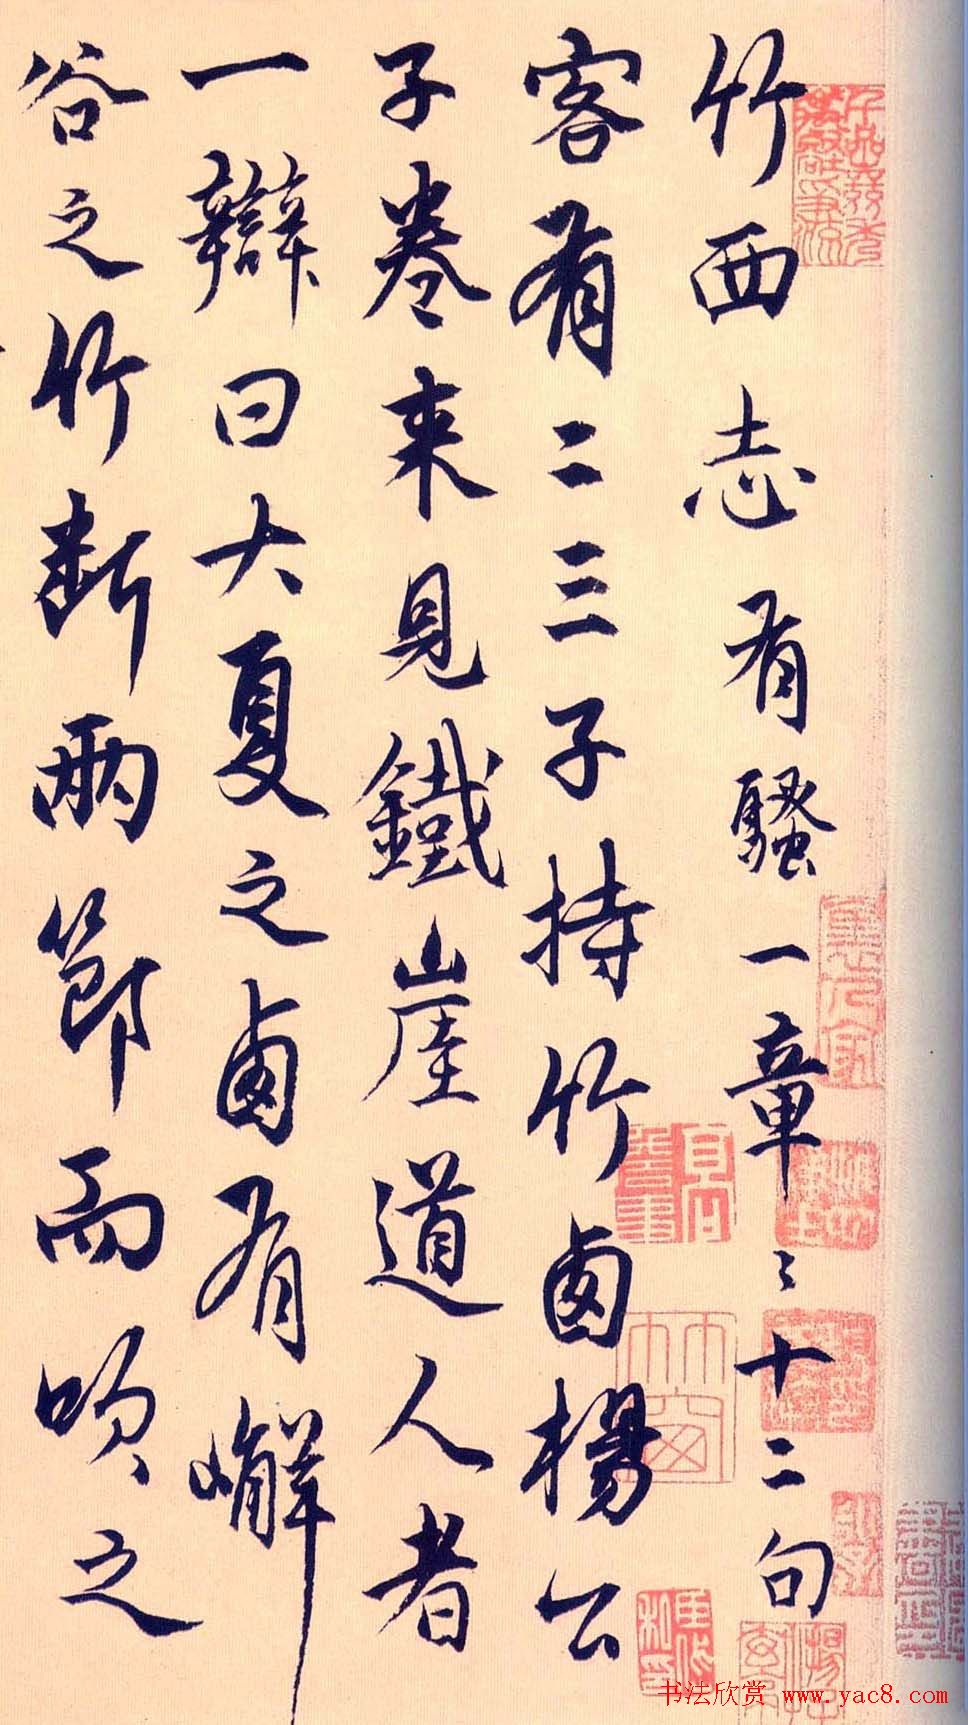 竹西志有騷一章〻十二句
客有二三子持竹卤楊公
子卷来見鐵崖道人者
一辯曰大夏之卤有嶰
谷之竹断兩節而吹之
竹窗
书法欣赏 www.yac8.com